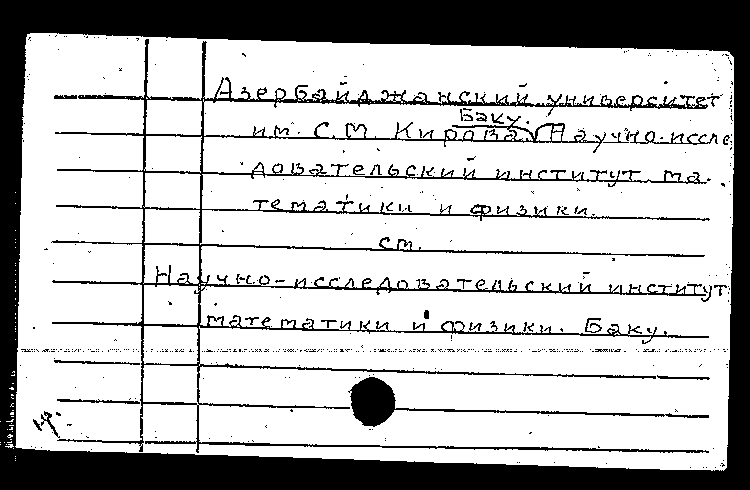 Азербайджанский университет
им. С.М. Кирова. Баку. Научно-иссле
довательский институт ма-
тематики и физики.
см.
Научно-исследовательский институт
математики и физики. Баку.